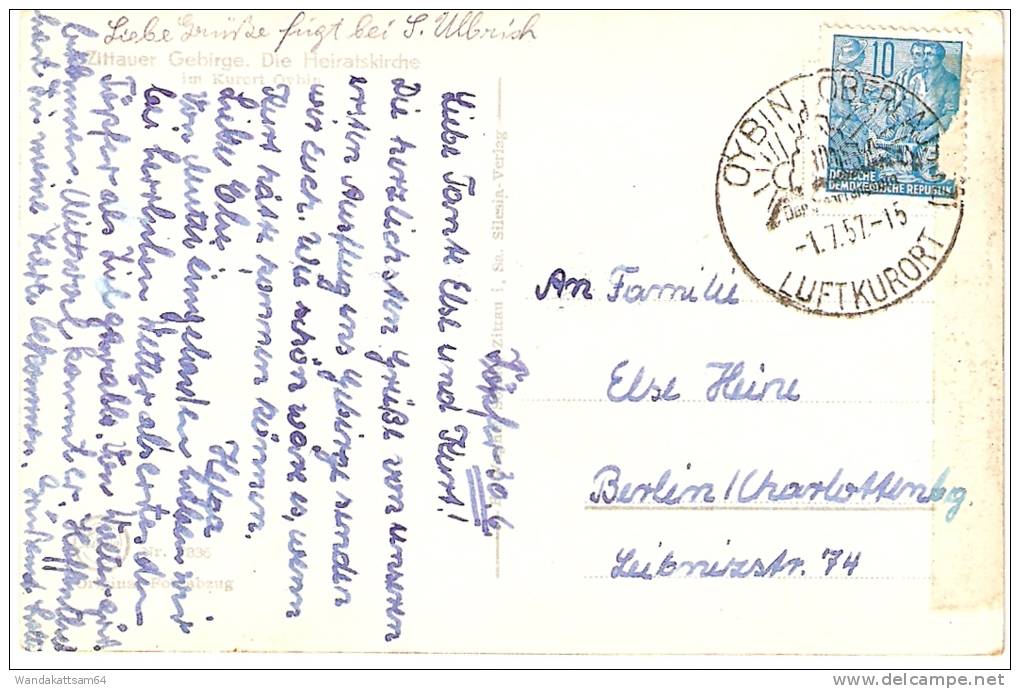 Liebe Grüße fügt bei S. Ulbrich
Zittauer Gebirge. Die Heiratskirche
im Kurort Oybin
Töpfer 30.6.
Liebe Tante Else und Kurt!
Die herzlichsten Grüße von unseren
ersten Ausflug ins Gebirge senden
wir euch. Wie schön wäre es, wenn
Kurt hätte kommen können.
Helga
Liebe Else!
Von Mutti eingeladen haben wir
bei herrlichen Wetter als erstes den
Töpfer als Ziel gewählt. Dein
bekommen. Mittwoch kommt er. Hoffentlich
hast Du meine Karte bekommen.
Zittau i. Sa. Silesia-Verlag
Nr.
10
DEUTSCHE
DEMOKRATISCHE REPUBLIK
OYBIN OBERLAUS
-1.7.57.-15
LUFTKURORT
An Familie
Else Heine
Berlin/Charlottenbg.
Leibnizstr. 74
Wandakattsam64
delcampe.net